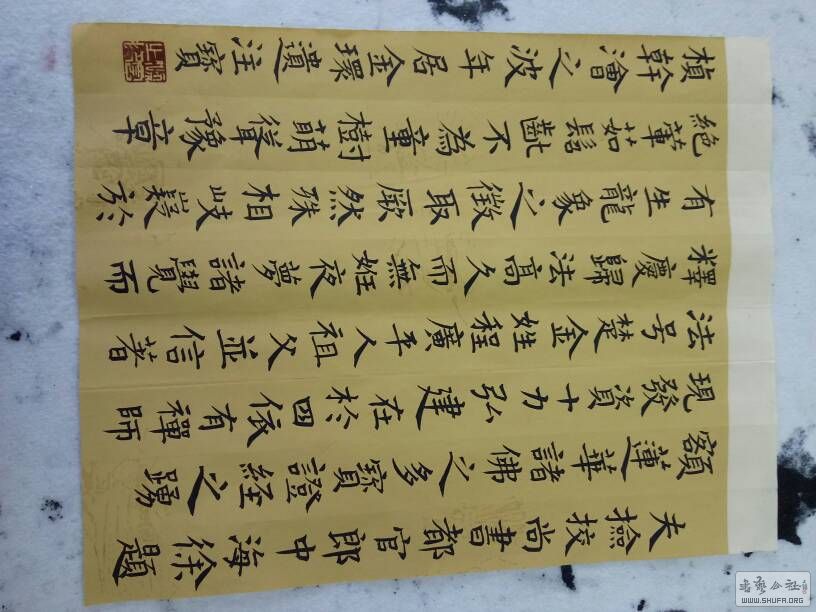 夫撿挍尚書都官郎中海徐題
額蓮華諸佛之多寶證經之踴
現發資十力弘建在於四依有禪師
法号楚金姓程廣平人祖父並信著
釋慶歸法高久而無妊夜夢諸覺而
有生龍象之徵取厥然殊相岐嶷於
絕葷茹髫齔不為童樹萌聳豫章
楨幹澮之波年居金環遺注寶
書藝公社
WWW.SHUFA.ORG